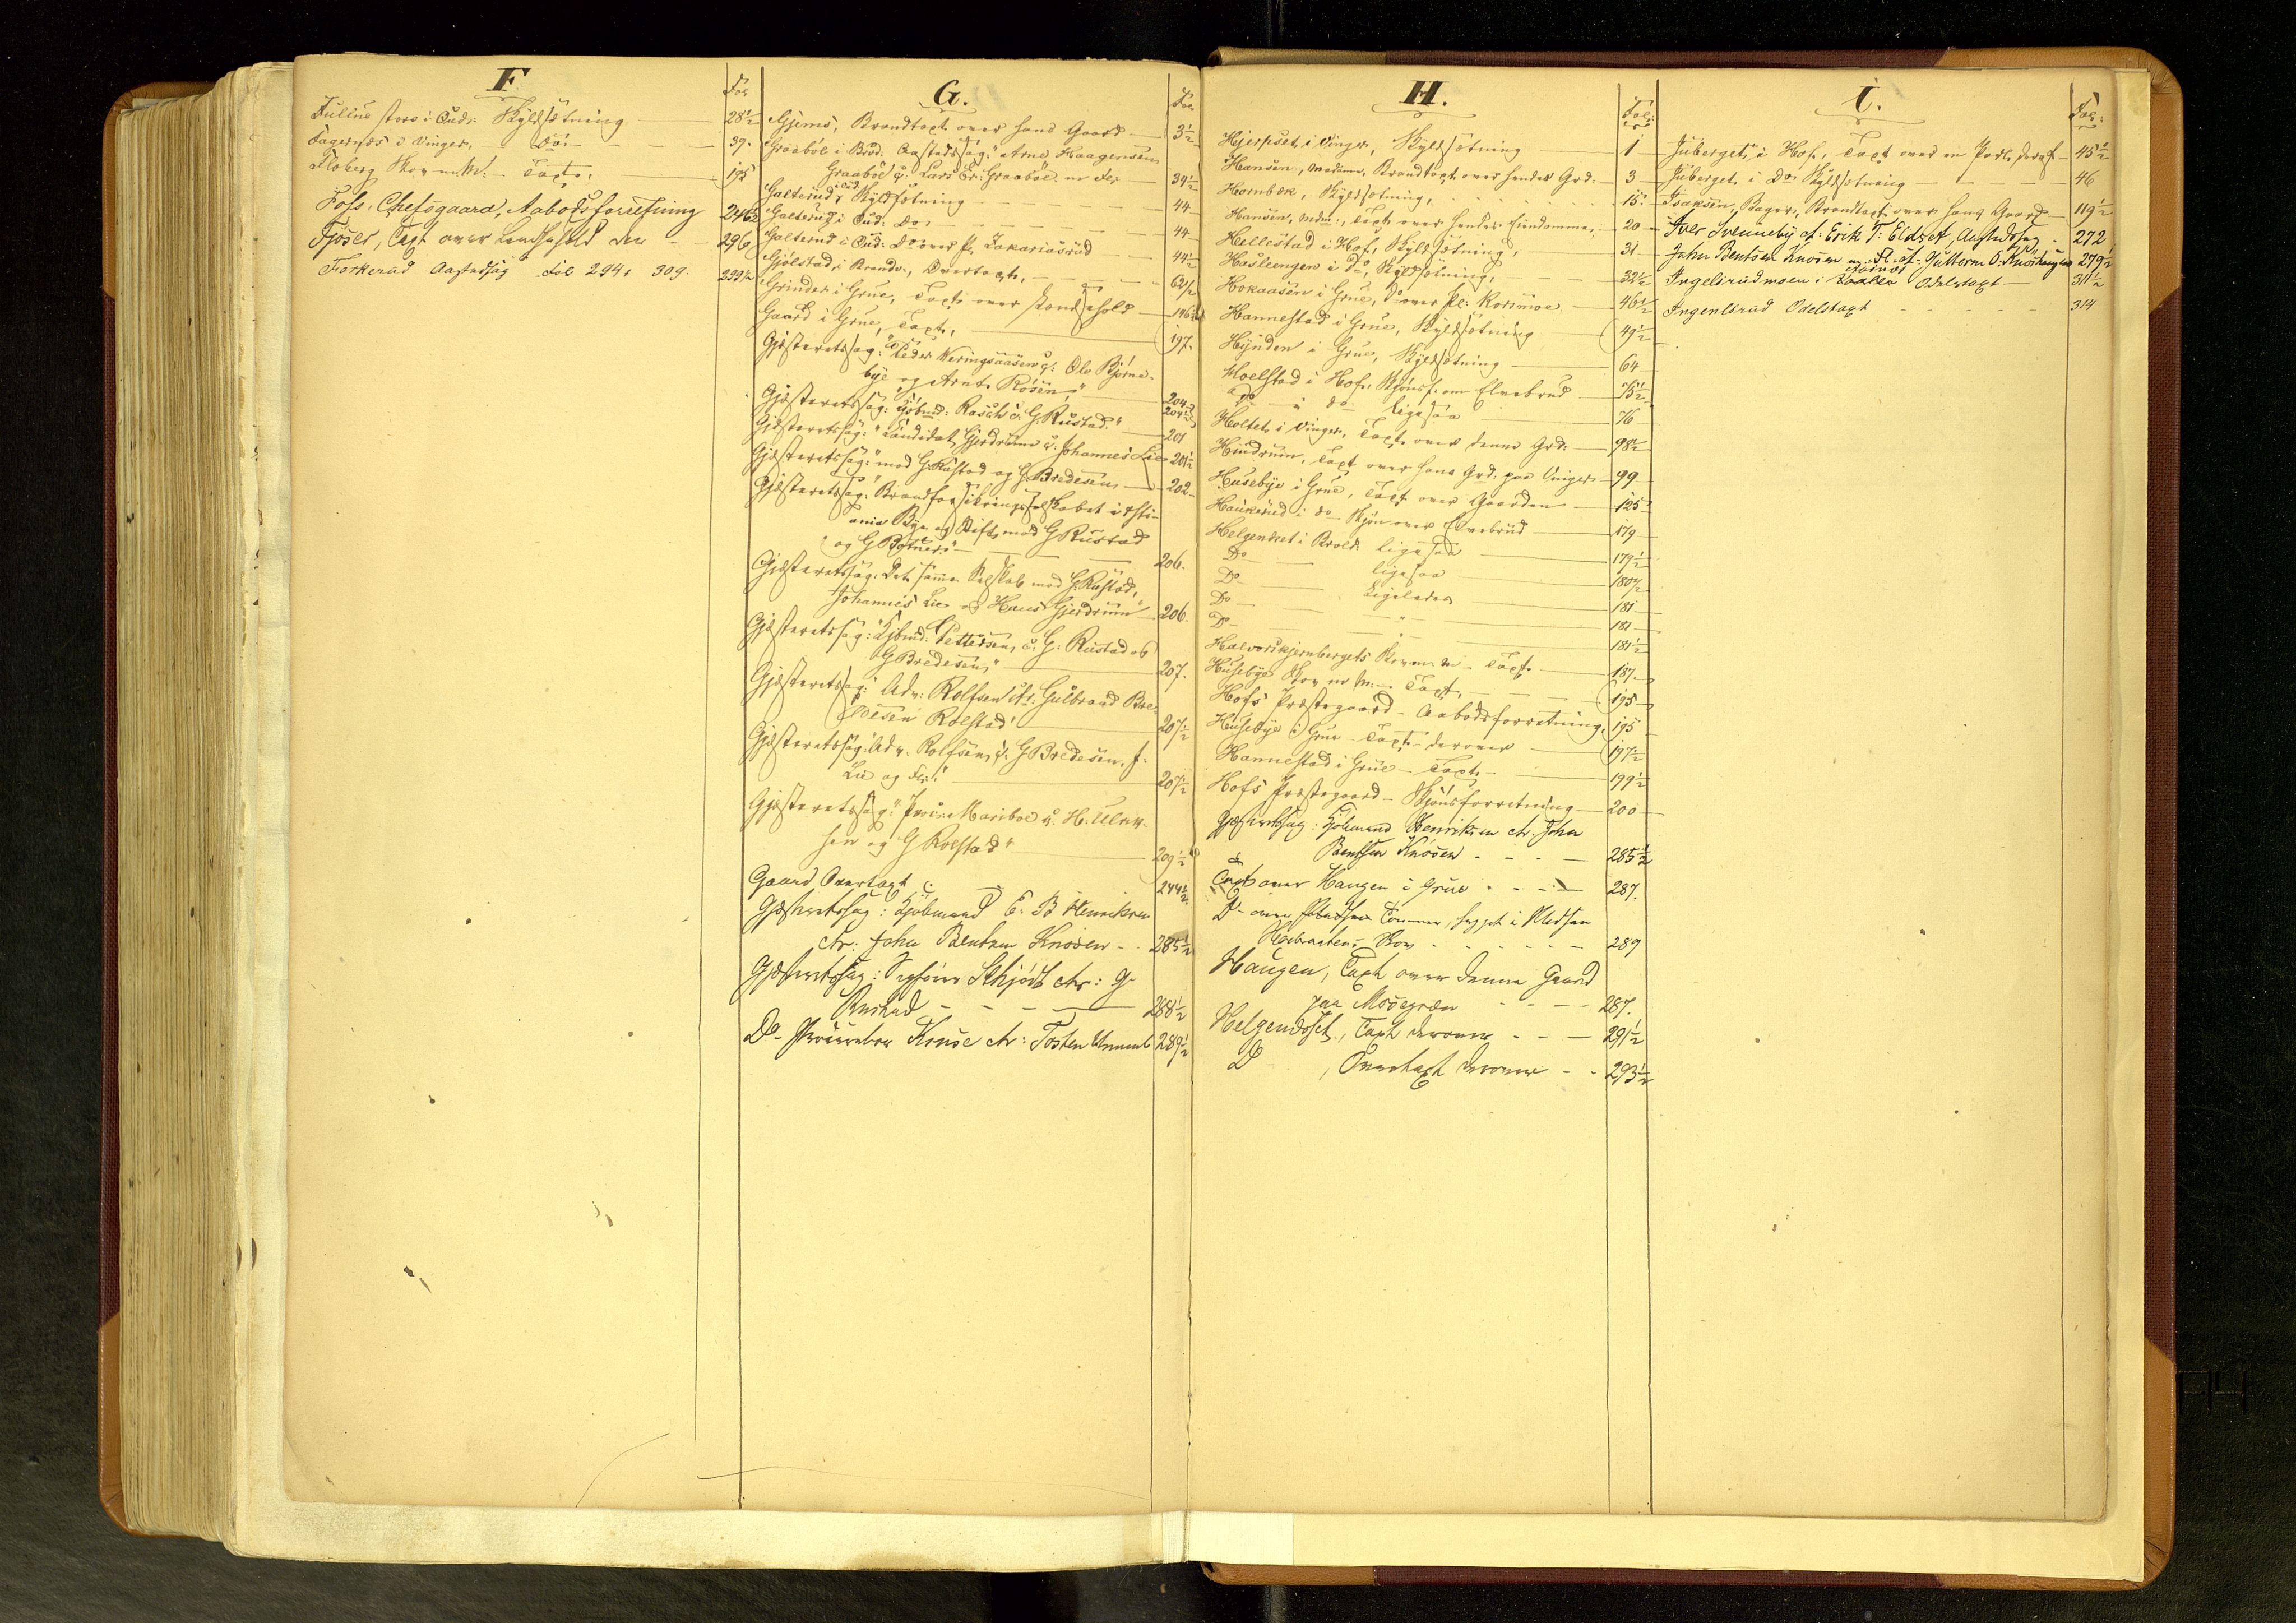 F.
Fol
Fuline store i Eids: Skyldsætning 28½
Fagernæs i Vinger, Do: 39.
Floberg Skov m. M: - Taxt, 195
Fols. Chefsgaard, Aabodsforretning 246½
Fjøser, Taxt over 296
Forkerud Aastedsag Fol 294, 309. 299½
G.
Fol.
Gjems, Brandtaxt over hans Gaard 3½
Graabøl i Brd. Aastedssag: "Arne Haagensen
Graabøl ctr. Lars Er: Graabøl m fler 34½
Galterud, i Eid, Skyldsætning 44
Galterud i Eid: Do 44
Galterud i Eid: Do over Pl. Zakariasrud 44½
Gjølstad, i Brandv., Overtaxt, 62½
Grinder i Grue, Taxt over 146½
Gaard i Grue, Taxt, 197.
Gjæsteretssag: "Peder Næringsaasen ctr: Ole Bjørne-
bye og Arnt Rosén," 204½
Gjæsteretssag: Kjøbmd: Rasch ctr: G. Rustad." 204½
Gjæsteretssag: "Candidat Gjerdrum ctr. Johannes Lie 201
Gjæsteretssag: "mod G. Rustad og G. Bredesen, 201½
Gjæsteretssag: Brandforsikringsselskabet i Christi- 202
ania Bye og Stift, mod G Rustad
og G 206.
Gjæsteretssag: Det samme Selskab mod G. Rustad,
Johannes Lie og Hans Gjerdrum" 206.
Gjæsteretssag: "Kjbmd: Pettersen, ctr. G: Rustad og
G Bredesen," 207.
Gjæsteretssag: Adv: Rolfsen ctr: Gulbrand Bre-
desen Rolstad" 207½
Gjæsteretssag: Adv. Rolfsen, ctr. G Bredesen, J.
Lie og Fl:" 207½
Gjæsteretssag: "Proc: Mariboe ctr. H. Ulrik-
sen og G Rolstad" 209½
Gaard Overtaxt 244½
Gjæsteretssag: Kjøbmand E. B Henriksen
ctr: John Bentsen Knosen 285½
Gjæsteretssag: Sagfører Schjødt ctr: G
Rustad 288½
Do Procurator Kruse ctr: Tosten 289½
H.
Fol:
Hjerpset, i Vinger, Skyldsætning 1
Hansen, Madame, Brandtaxt over hendes Grd: 3
Hornbæk, Skyldsætning, 15
Hansen, Mdm:, Taxt over hendes Eiendomme, 20
Hellestad i Hof, Skyldsætning, 31
Hasleengen i Do, Skyldsætning, 32½
Hokaasen i Grue, Do over Pl: Korsmoe 46½
Hannestad i Grue, Skyldsætning 49½
Hynden i Grue, Skyldsætning 64
Moelstad i Hof, Skjønsf. om Elvebrud 75½
Do i do ligesaa 76
Holtet, i Vinger, Taxt over denne Grd: 98½
Hindrum, Taxt over hans Grd: paa Vinger 99
Husebye i Grue, Taxt over Gaarden 125
Haukerud i do Skjøn over Elvebrud 179
Helgendset i Brold: ligesaa 179½
Do ligesaa 180½
Do Ligeledes 181
Do " 181
Do " 181½
Halvorskjernbergets Skov m M - Taxt 187
Husebye Skov m M. - Taxt, 195
Hofs Præstegaard - Aabodsforretning, 195
Husebye i Grue - Taxt derover 197½
Hannestad i Grue - Taxt - 199½
Hofs Præstegaard - Skjønsforretning 200
Gjæsteretssag: Kjøbmand Henriksen ctr. John
Bentsen Knosen 285½
Taxt over Haugen i Grue 287.
Do over Tømmer, hugget i Madsen
Skov 289
Haugen, Taxt over denne Gaard
paa 287.
Helgendset, Taxt derover 291½
Do, Overtaxt derover 293½
I.
Fol:
Juberget, i Hof, Taxt over en Part deraf 45½
Juberget, i Do: Skyldsætning 46
Isaksen, Bager, Brandtaxt over hans Gaard 119½
Iver Svenneby ct: Erik T: Eldset, Aastedssag 272
John Bentsen Knosen m. fl. ct: Guttorm O. Knoshaugen 279½
Ingelsrudmoen i Aasnes Odelstaxt 311½
Ingenlsrud Odelstaxt 314